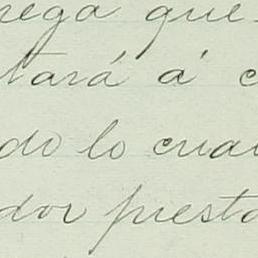 rega que
tará á c
do lo cual
dor presta